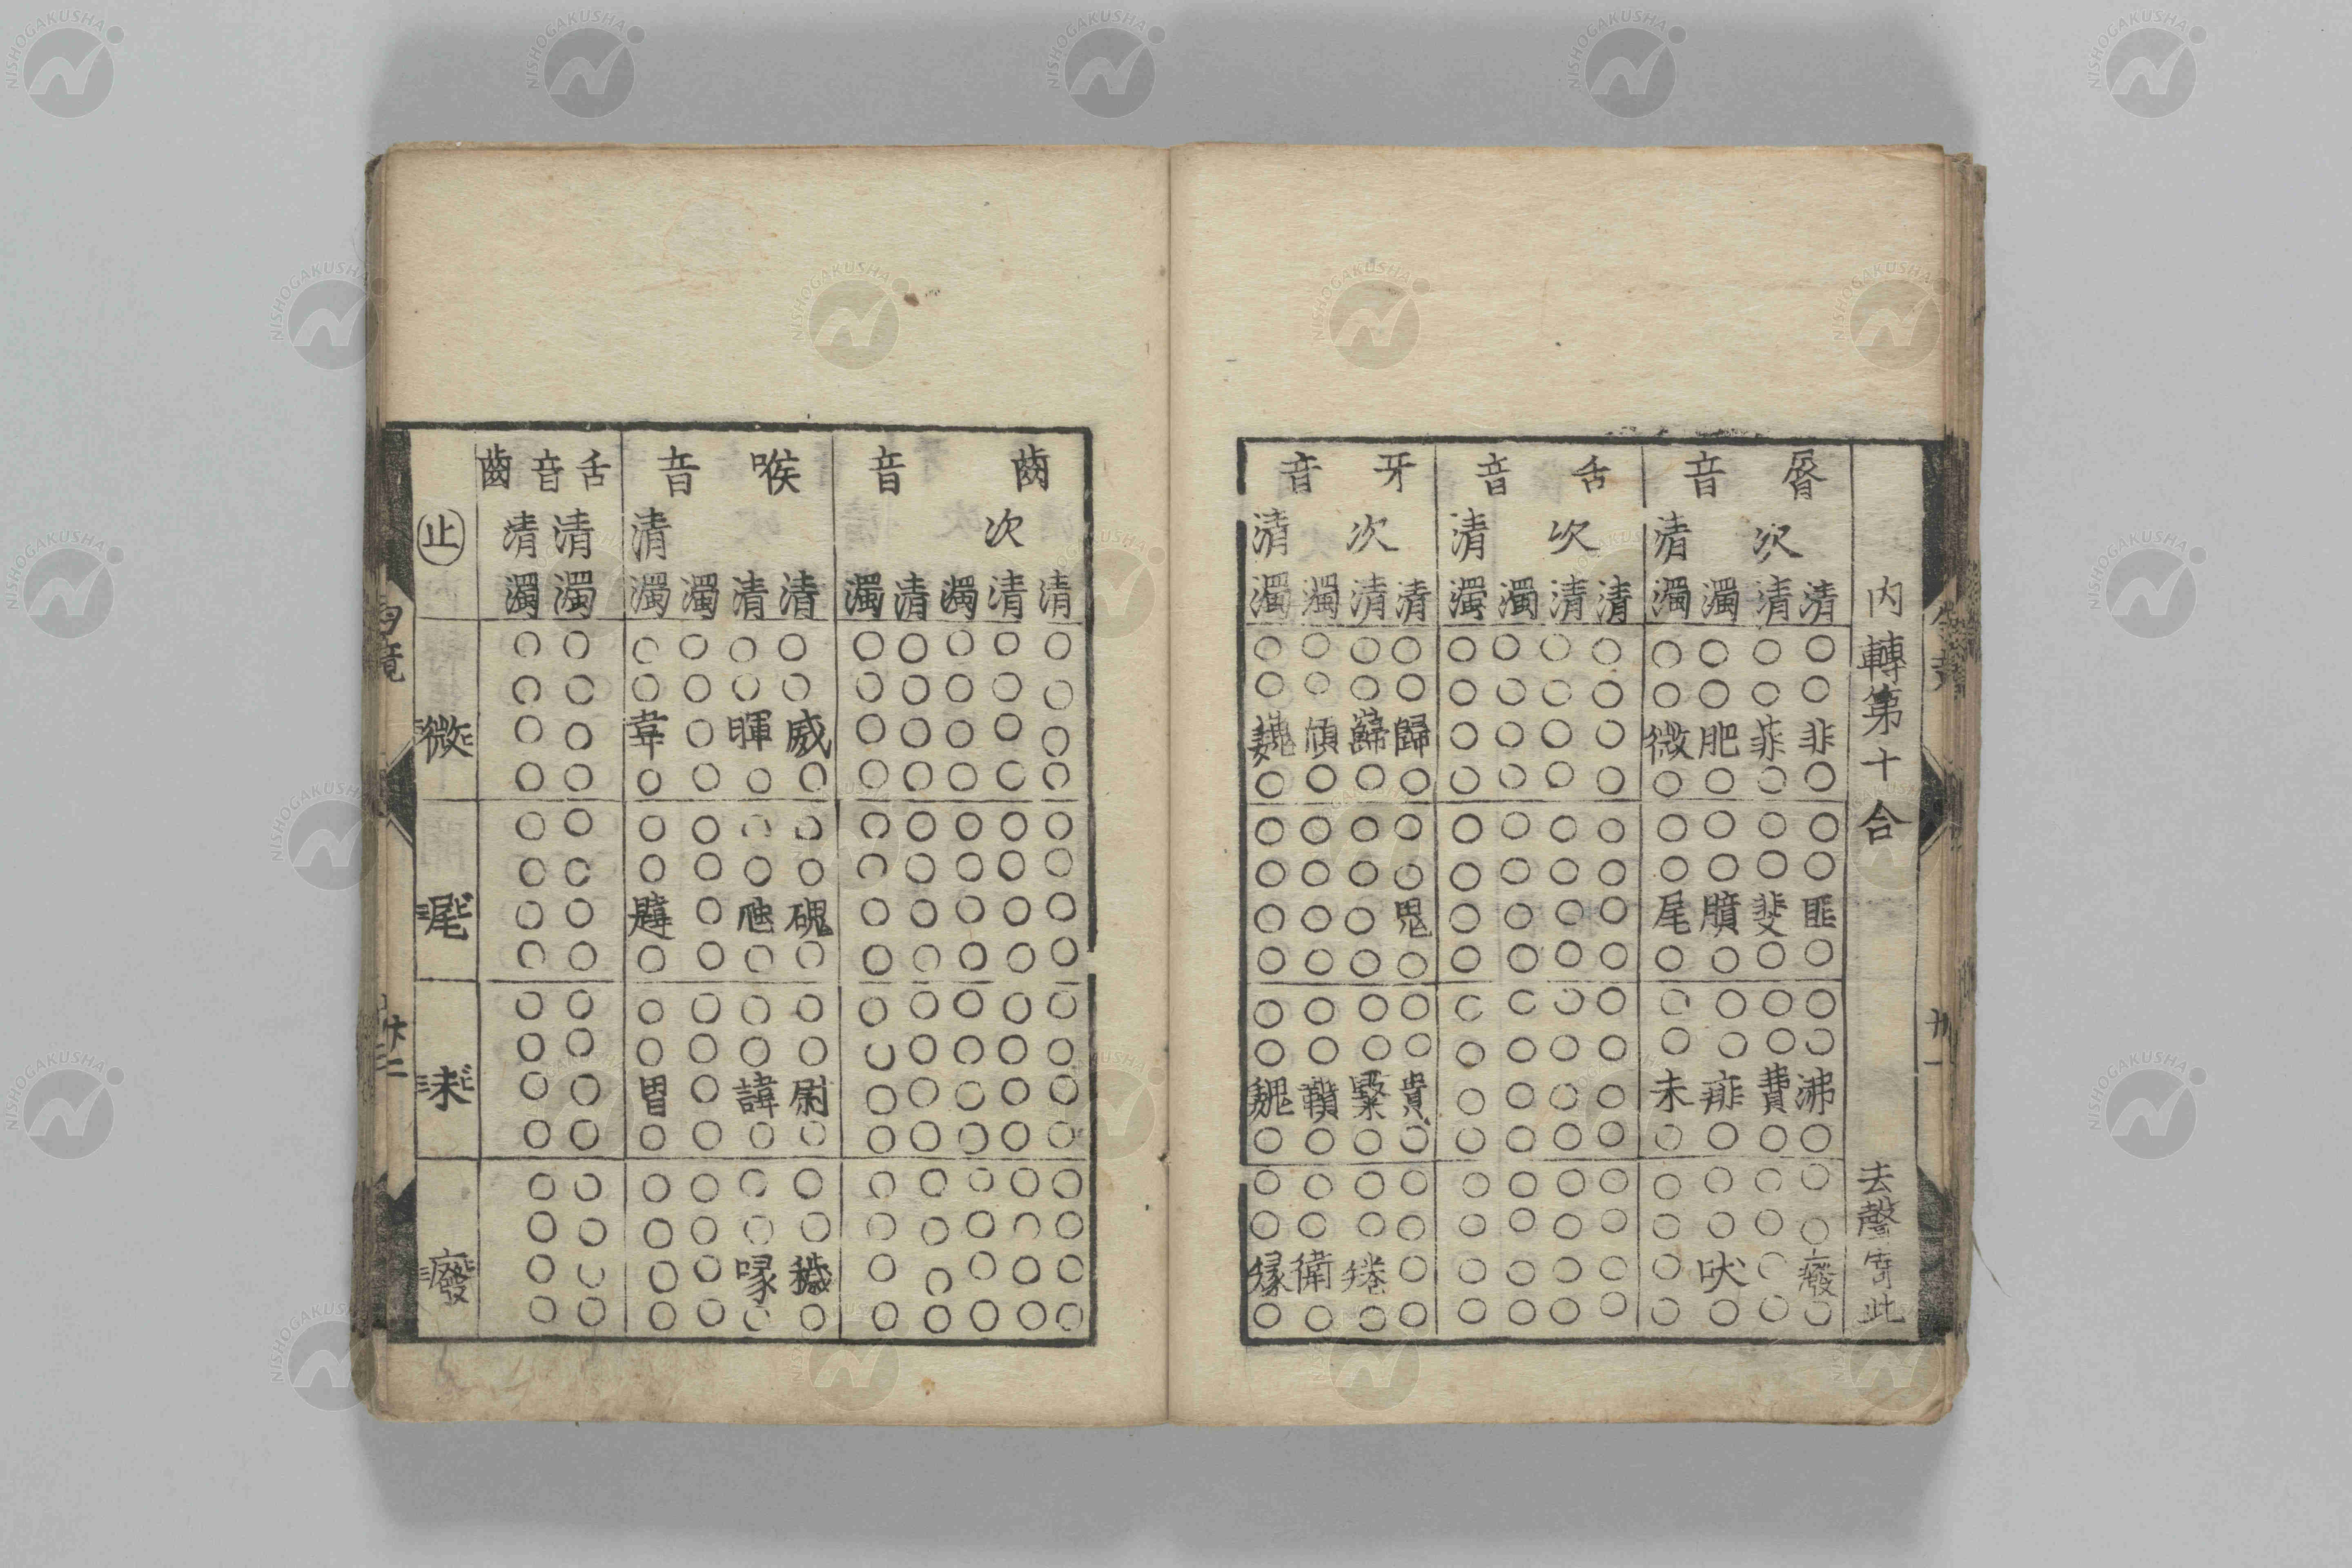 内轉第十合 去聲寄此
脣音
清 ○○非○ ○○匪○ ○○沸○ ○○廢○
次清 ○○菲○ ○○斐○ ○○費○ ○○○○
濁 ○○肥○ ○○膹○ ○○○ ○○吠○
清濁 ○○微○ ○○尾○ ○○未○ ○○○○
舌音
清 ○○○○ ○○○○ ○○○○ ○○○○
次清 ○○○○ ○○○○ ○○○○ ○○○○
濁 ○○○○ ○○○○ ○○○○ ○○○○
清濁 ○○○○ ○○○○ ○○○○ ○○○○
牙音
清 ○○歸○ ○○鬼○ ○○貴○ ○○○○
次清 ○○巋○ ○○○○ ○○○ ○○○
濁 ○○頎○ ○○○○ ○○○ ○○○
清濁 ○○巍○ ○○○○ ○○魏○ ○○○
齒音
清 ○○○○ ○○○○ ○○○○ ○○○○
次清 ○○○○ ○○○○ ○○○○ ○○○○
濁 ○○○○ ○○○○ ○○○○ ○○○○
清 ○○○○ ○○○○ ○○○○ ○○○○
濁 ○○○○ ○○○○ ○○○○ ○○○○
喉音
清 ○○威○ ○○磈○ ○○尉○ ○○穢○
清 ○○暉○ ○○虺○ ○○諱○ ○○喙○
濁 ○○○○ ○○○○ ○○○○ ○○○○
清濁 ○○韋○ ○○韙○ ○○胃○ ○○○○
舌音齒
清濁 ○○○○ ○○○○ ○○○○ ○○○○
清濁 ○○○○ ○○○○ ○○○○ ○○○○
止 微 尾 未 廢